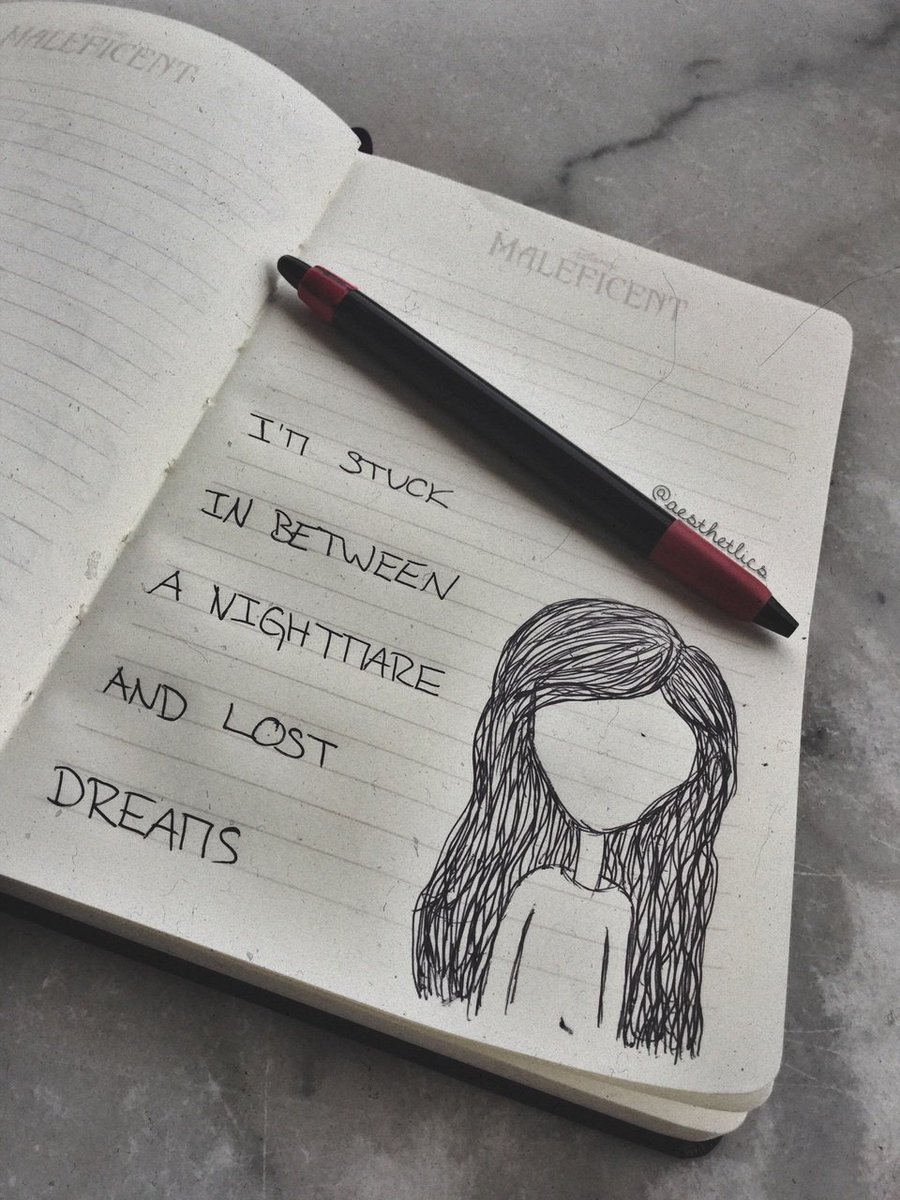 MALEFICENT
MALEFICENT
@aesthetlics
I'M STUCK
IN BETWEEN
A NIGHTMARE
AND LOST
DREAMS